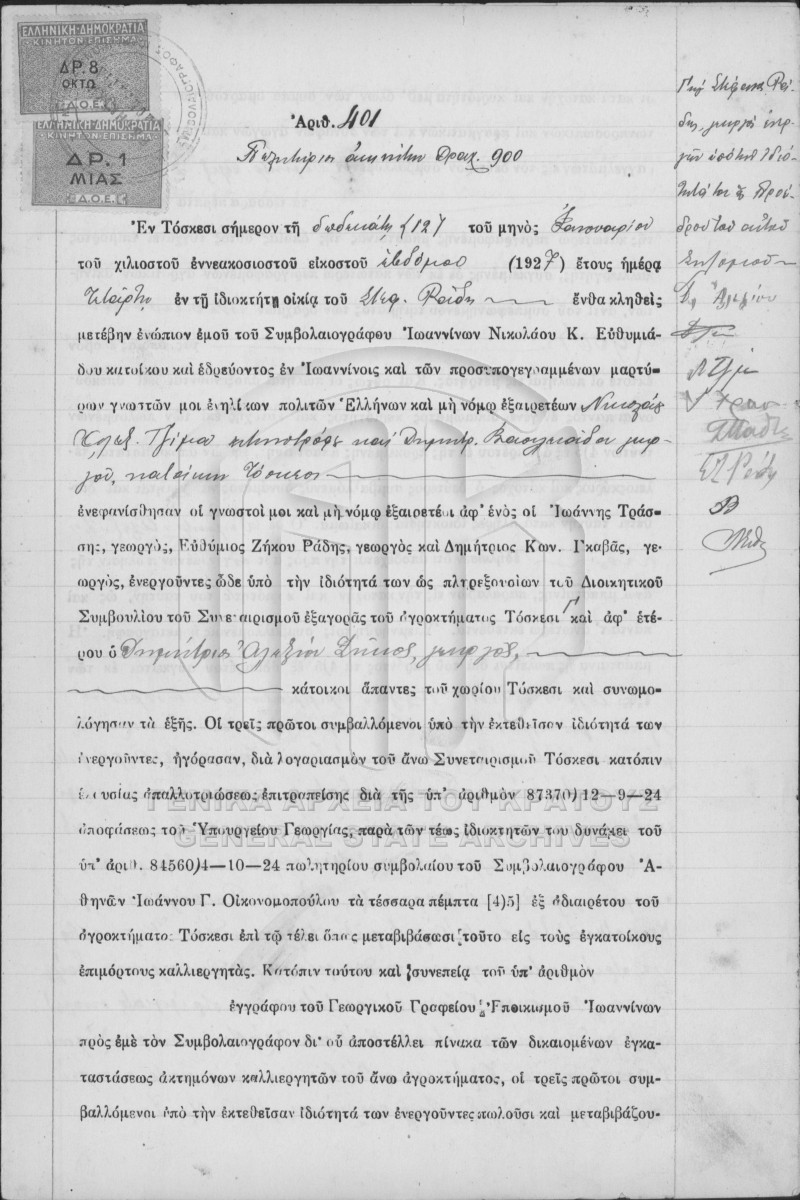 ΕΛΛΗΝΙΚΗ·ΔΗΜΟΚΡΑΤΙΑ
ΚΙΝΗΤΟΝ ΕΠΙΣΗΜΑ
ΔΡ. 8
ΟΚΤΩ
Δ.Ο.Ε.
ΕΛΛΗΝΙΚΗ·ΔΗΜΟΚΡΑΤΙΑ
ΚΙΝΗΤΟΝ ΕΠΙΣΗΜΑ
ΔΡ. 1
ΜΙΑΣ
Δ.Ο.Ε.
Ἀριθ. 401
Πωλητήριον ἀκινήτου Δραχ. 900
Ἐν Τόσκεσι σήμερον τῇ δωδεκάτῃ (12) τοῦ μηνὸς Ἰανουαρίου
τοῦ χιλιοστοῦ ἐννεακοσιοστοῦ εἰκοστοῦ ἑβδόμου (1927) ἔτους ἡμέρᾳ
Τετάρτῃ ἐν τῇ ἰδιοκτήτῳ οἰκίᾳ τοῦ Στεφ. Ράδη ἔνθα κληθεὶς
μετέβην ἐνώπιον ἐμοῦ τοῦ Συμβολαιογράφου Ἰωαννίνων Νικολάου Κ. Εὐθυμιά-
δου κατοίκου καὶ ἑδρεύοντος ἐν Ἰωαννίνοις καὶ τῶν προσυπογεγραμμένων μαρτύ-
ρων γνωστῶν μοι ἐνηλίκων πολιτῶν Ἑλλήνων καὶ μὴ νόμῳ ἐξαιρετέων Νικολάου
Τζίμα κτηνοτρόφου καὶ Δημητρ. Βασιλειάδου γεωρ-
γοῦ, κατοίκων Τόσκεσι
ἐνεφανίσθησαν οἱ γνωστοί μοι καὶ μὴ νόμῳ ἐξαιρετέοι ἀφ' ἑνὸς οἱ Ἰωάννης Τράσ-
σης, γεωργός, Εὐθύμιος Ζήκου Ράδης, γεωργὸς καὶ Δημήτριος Κων. Γκαβᾶς, γε-
ωργός, ἐνεργοῦντες ὧδε ὑπὸ τὴν ἰδιότητά των ὡς πληρεξουσίων τοῦ Διοικητικοῦ
Συμβουλίου τοῦ Συνεταιρισμοῦ ἐξαγορᾶς τοῦ ἀγροκτήματος Τόσκεσι Γ καὶ ἀφ' ἑτέ-
ρου ὁ Δημήτριος Ἀλεξίου Ζήκος, γεωργός,
κάτοικοι ἅπαντες τοῦ χωρίου Τόσκεσι καὶ συνωμο-
λόγησαν τὰ ἑξῆς. Οἱ τρεῖς πρῶτοι συμβαλλόμενοι ὑπὸ τὴν ἐκτεθεῖσαν ἰδιότητά των
ἐνεργοῦντες, ἠγόρασαν, διὰ λογαριασμὸν τοῦ ἄνω Συνεταιρισμοῦ Τόσκεσι κατόπιν
ἑκουσίας ἀπαλλοτριώσεως ἐπιτραπείσης διὰ τῆς ὑπ' ἀριθμὸν 87370)12—9—24
ἀποφάσεως τοῦ Ὑπουργείου Γεωργίας, παρὰ τῶν τέως ἰδιοκτητῶν του δυνάμει τοῦ
ὑπ' ἀριθ. 84560)4—10—24 πωλητηρίου συμβολαίου τοῦ Συμβολαιογράφου Ἀ-
θηνῶν Ἰωάννου Γ. Οἰκονομοπούλου τὰ τέσσαρα πέμπτα [4)5] ἐξ ἀδιαιρέτου τοῦ
ἀγροκτήματος Τόσκεσι ἐπὶ τῷ τέλει ὅπως μεταβιβάσωσι τοῦτο εἰς τοὺς ἐγκατοίκους
ἐπιμόρτους καλλιεργητάς. Κατόπιν τούτου καὶ συνεπείᾳ τοῦ ὑπ' ἀριθμὸν
ἐγγράφου τοῦ Γεωργικοῦ Γραφείου Ἐποικισμοῦ Ἰωαννίνων
πρὸς ἐμὲ τὸν Συμβολαιογράφον δι' οὗ ἀποστέλλει πίνακα τῶν δικαιουμένων ἐγκα-
ταστάσεως ἀκτημόνων καλλιεργητῶν τοῦ ἄνω ἀγροκτήματος, οἱ τρεῖς πρῶτοι συμ-
βαλλόμενοι ὑπὸ τὴν ἐκτεθεῖσαν ἰδιότητά των ἐνεργοῦντες πωλοῦσι καὶ μεταβιβάζου-
Γ καὶ Στέφανος Ρά-
δης, γεωργὸς ἐνερ-
γῶν ὑπὸ τὴν ἰδιό-
τητά του ὡς Προέ-
δρου τοῦ αὐτοῦ
ΓΕΝΙΚΑ ΑΡΧΕΙΑ ΤΟΥ ΚΡΑΤΟΥΣ
GENERAL STATE ARCHIVES